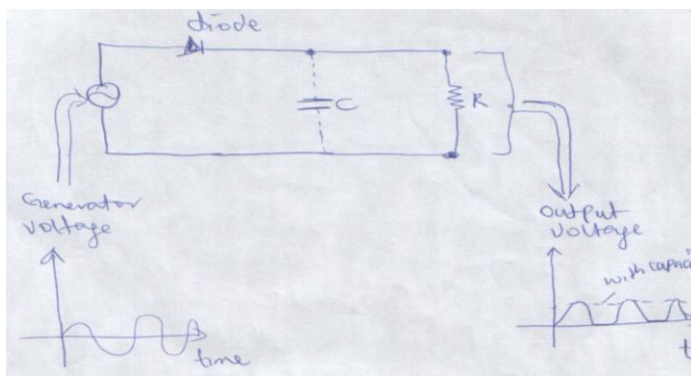 diode
C
R
Generator
voltage
output
voltage
with capaci
time
t